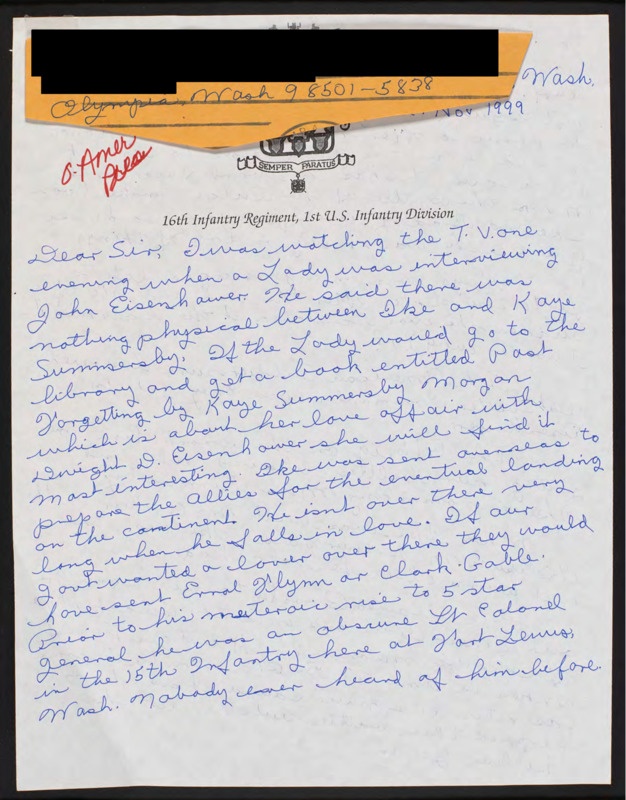 Olympia, Wash 98501-5838
Wash.
Nov 1999
SEMPER PARATUS
16th Infantry Regiment, 1st U.S. Infantry Division
Dear Sir, I was watching the T.V. one
evening when a Lady was interviewing
John Eisenhower. He said there was
nothing physical between Ike and Kaye
Summersby. If the Lady would go to the
library and get a book entitled Past
Forgetting by Kaye Summersby Morgan
which is about her love affair with
Dwight D. Eisenhower she will find it
most interesting. Ike was sent overseas to
prepare the Allies for the eventual landing
on the continent. He isnt over there very
long when he falls in love. If our
Govt wanted a lover over there they would
have sent Errol Flynn or Clark Gable.
Prior to his meteraic rise to 5 star
general he was an obscure Lt Colonel
in the 15th Infantry here at Fort Lewis,
Wash. Nobody ever heard of him before.